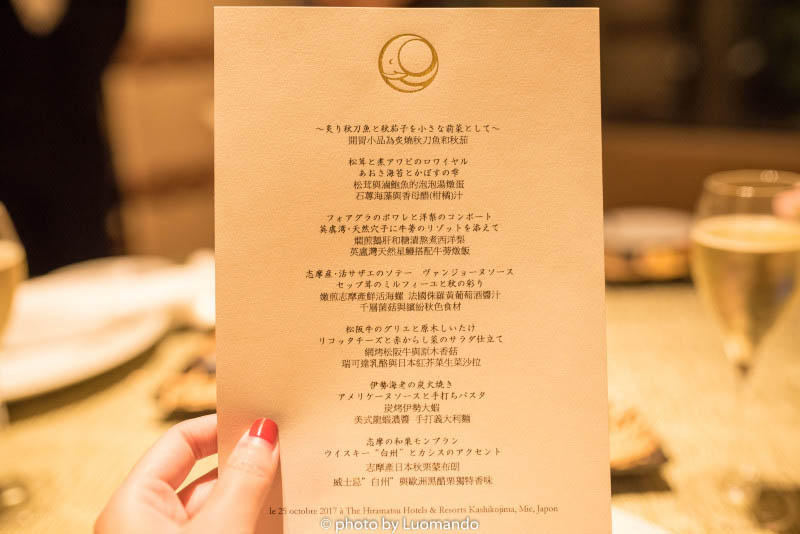 ～炙り秋刀魚と秋茄子を小さな前菜として～
開胃小品為炙燒秋刀魚和秋茄
松茸と煮アワビのロワイヤル
あおさ海苔とかぼすの雫
松茸與滷鮑魚的泡泡湯燉蛋
石蓴海藻與香母醋(柑橘)汁
フォアグラのポワレと洋梨のコンポート
英虞湾・天然穴子に牛蒡のリゾットを添えて
燜煎鵝肝和糖漬熬煮西洋梨
英虞灣天然星鰻搭配牛蒡燉飯
志摩産・活サザエのソテー　ヴァンジョーヌソース
セップ茸のミルフィーユと秋の彩り
嫩煎志摩產鮮活海螺 法國侏羅黃葡萄酒醬汁
千層菌菇與繽紛秋色食材
松阪牛のグリエと原木しいたけ
リコッタチーズと赤からし菜のサラダ仕立て
網烤松阪牛與原木香菇
瑞可達乳酪與日本紅芥菜生菜沙拉
伊勢海老の炭火焼き
アメリケーヌソースと手打ちパスタ
炭烤伊勢大蝦
美式龍蝦濃醬 手打義大利麵
志摩の和栗モンブラン
ウイスキー“白州”とカシスのアクセント
志摩產日本秋栗蒙布朗
威士忌”白州”與歐洲黑醋栗獨特香味
le 25 octobre 2017 à The Hiramatsu Hotels & Resorts Kashikojima, Mie, Japon
© photo by Luomando